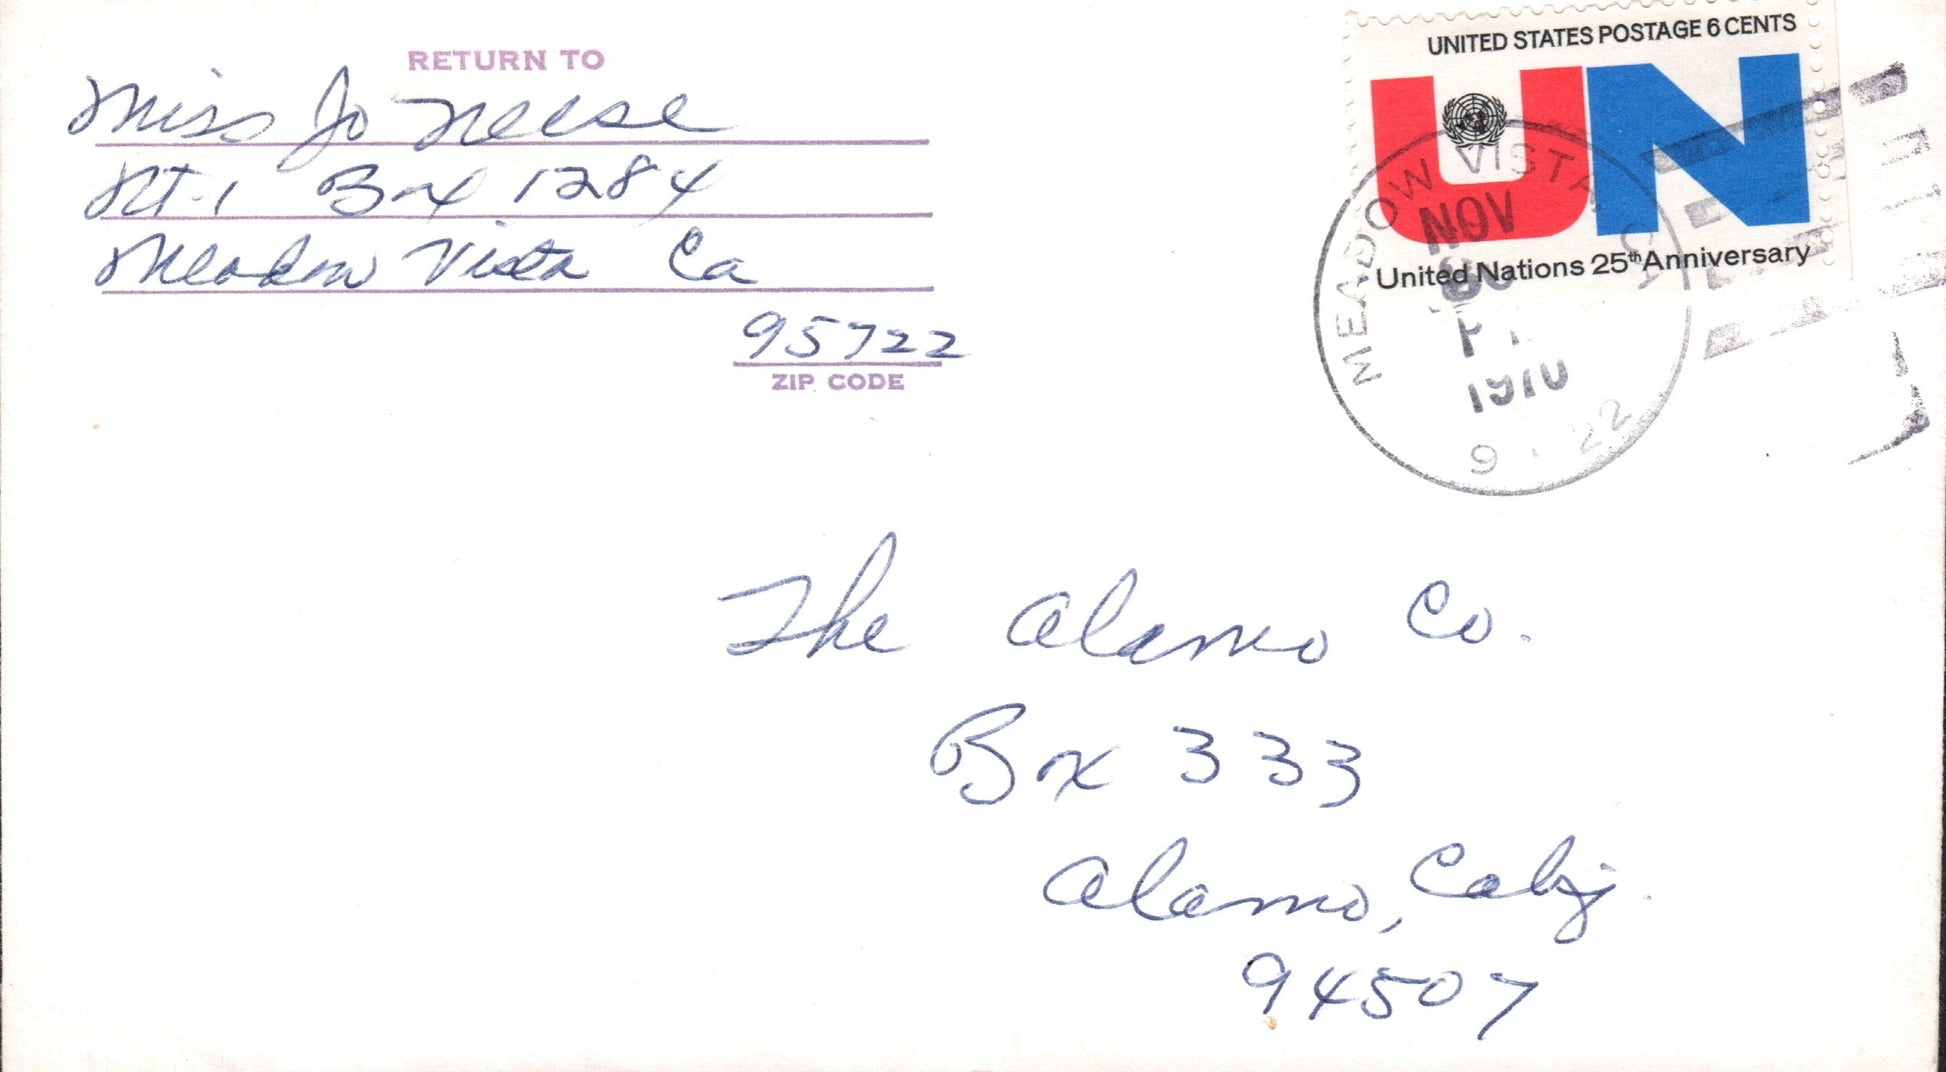 RETURN TO
Miss Jo Neese
Rt. 1 Box 1284
Meadow Vista Ca
95722
ZIP CODE
UNITED STATES POSTAGE 6 CENTS
UN
United Nations 25th Anniversary
MEADOW VISTA
NOV
1970
The Alamo Co.
Box 333
Alamo, Calif.
94507